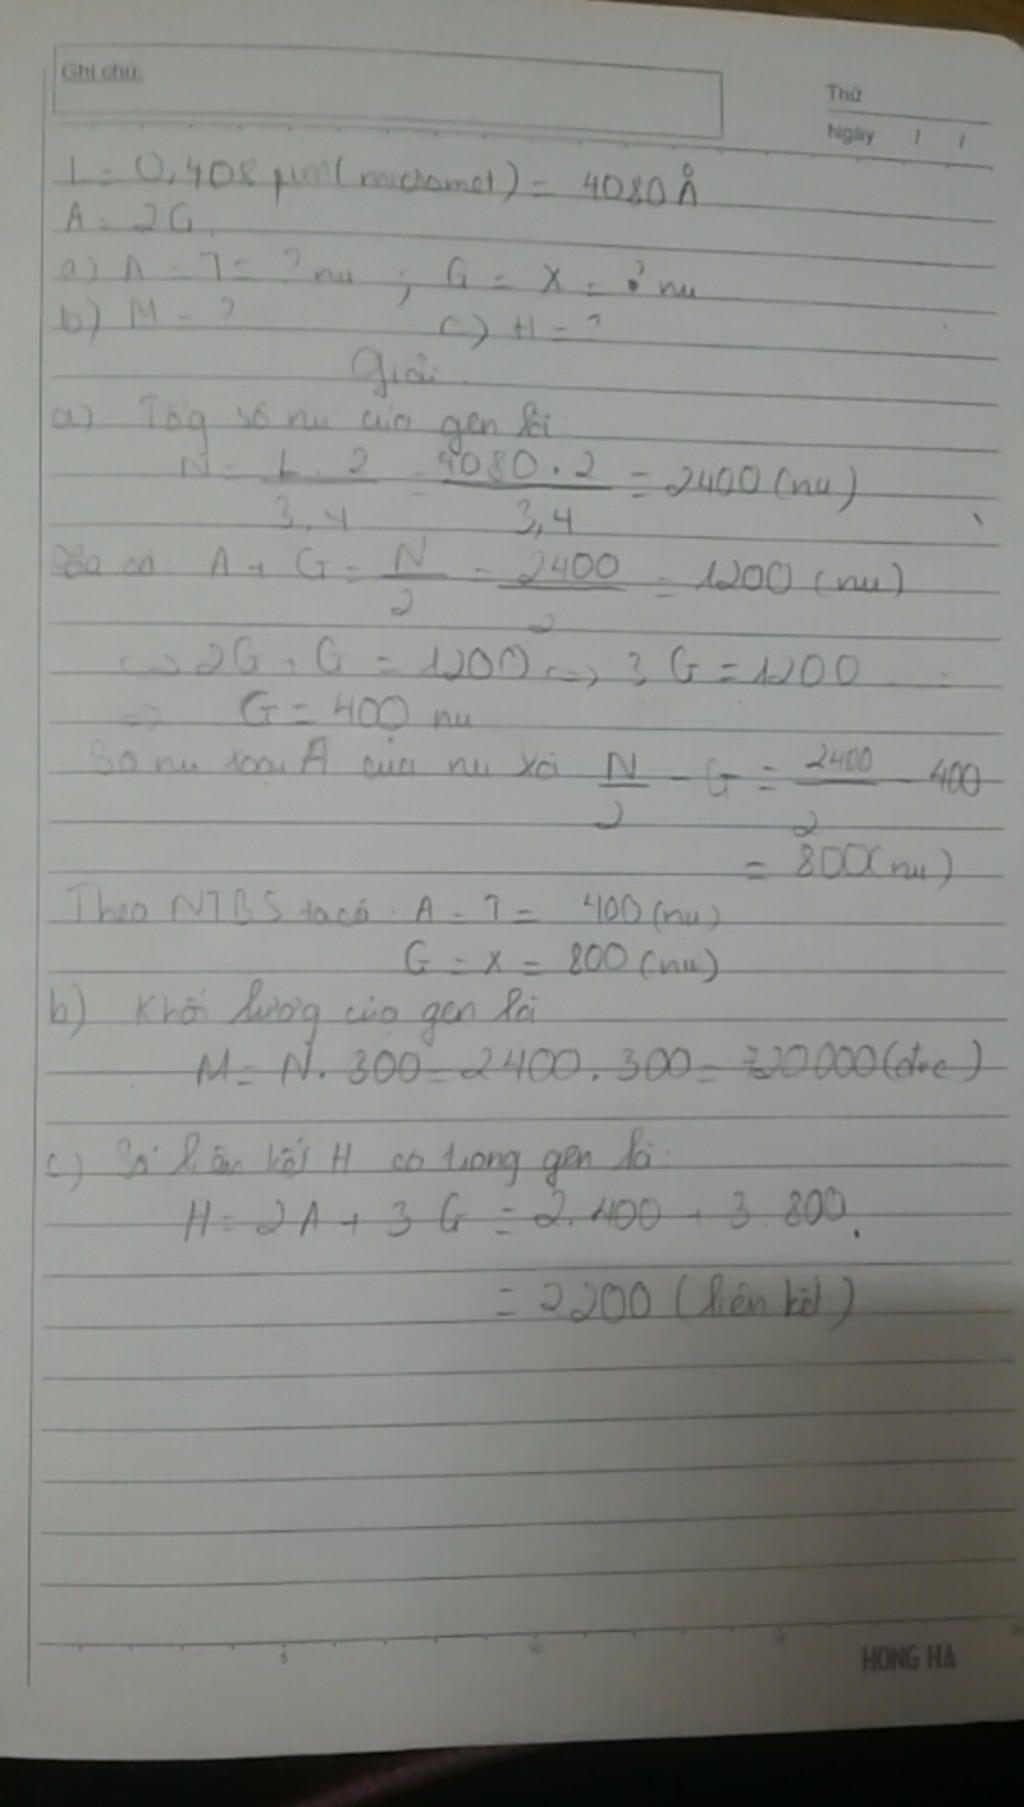 Ghi chú:
Thứ
Ngày / /
L = 0,408 µm (micromet) = 4080 Å
A = 2G
a) A = T = ? nu ; G = X = ? nu
b) M = ? c) H = ?
Giải
a) Tổg số nu của gen là
N = L . 2 / 3,4 = 4080 . 2 / 3,4 = 2400 (nu)
Ta có: A + G = N / 2 = 2400 / 2 = 1200 (nu)
<=> 2G + G = 1200 <=> 3 G = 1200
=> G = 400 nu
Số nu loại A của nu là N / 2 - G = 2400 / 2 - 400
= 800 (nu)
Theo NTBS ta có : A = T = 400 (nu)
G = X = 800 (nu)
b) Khối lượng của gen là
M = N . 300 = 2400 . 300 = 720000 (đvc)
c) Số liên kết H có trong gen là
H = 2A + 3 G = 2.400 + 3.800
= 2200 (liên kết)
5 10 15
HONG HA